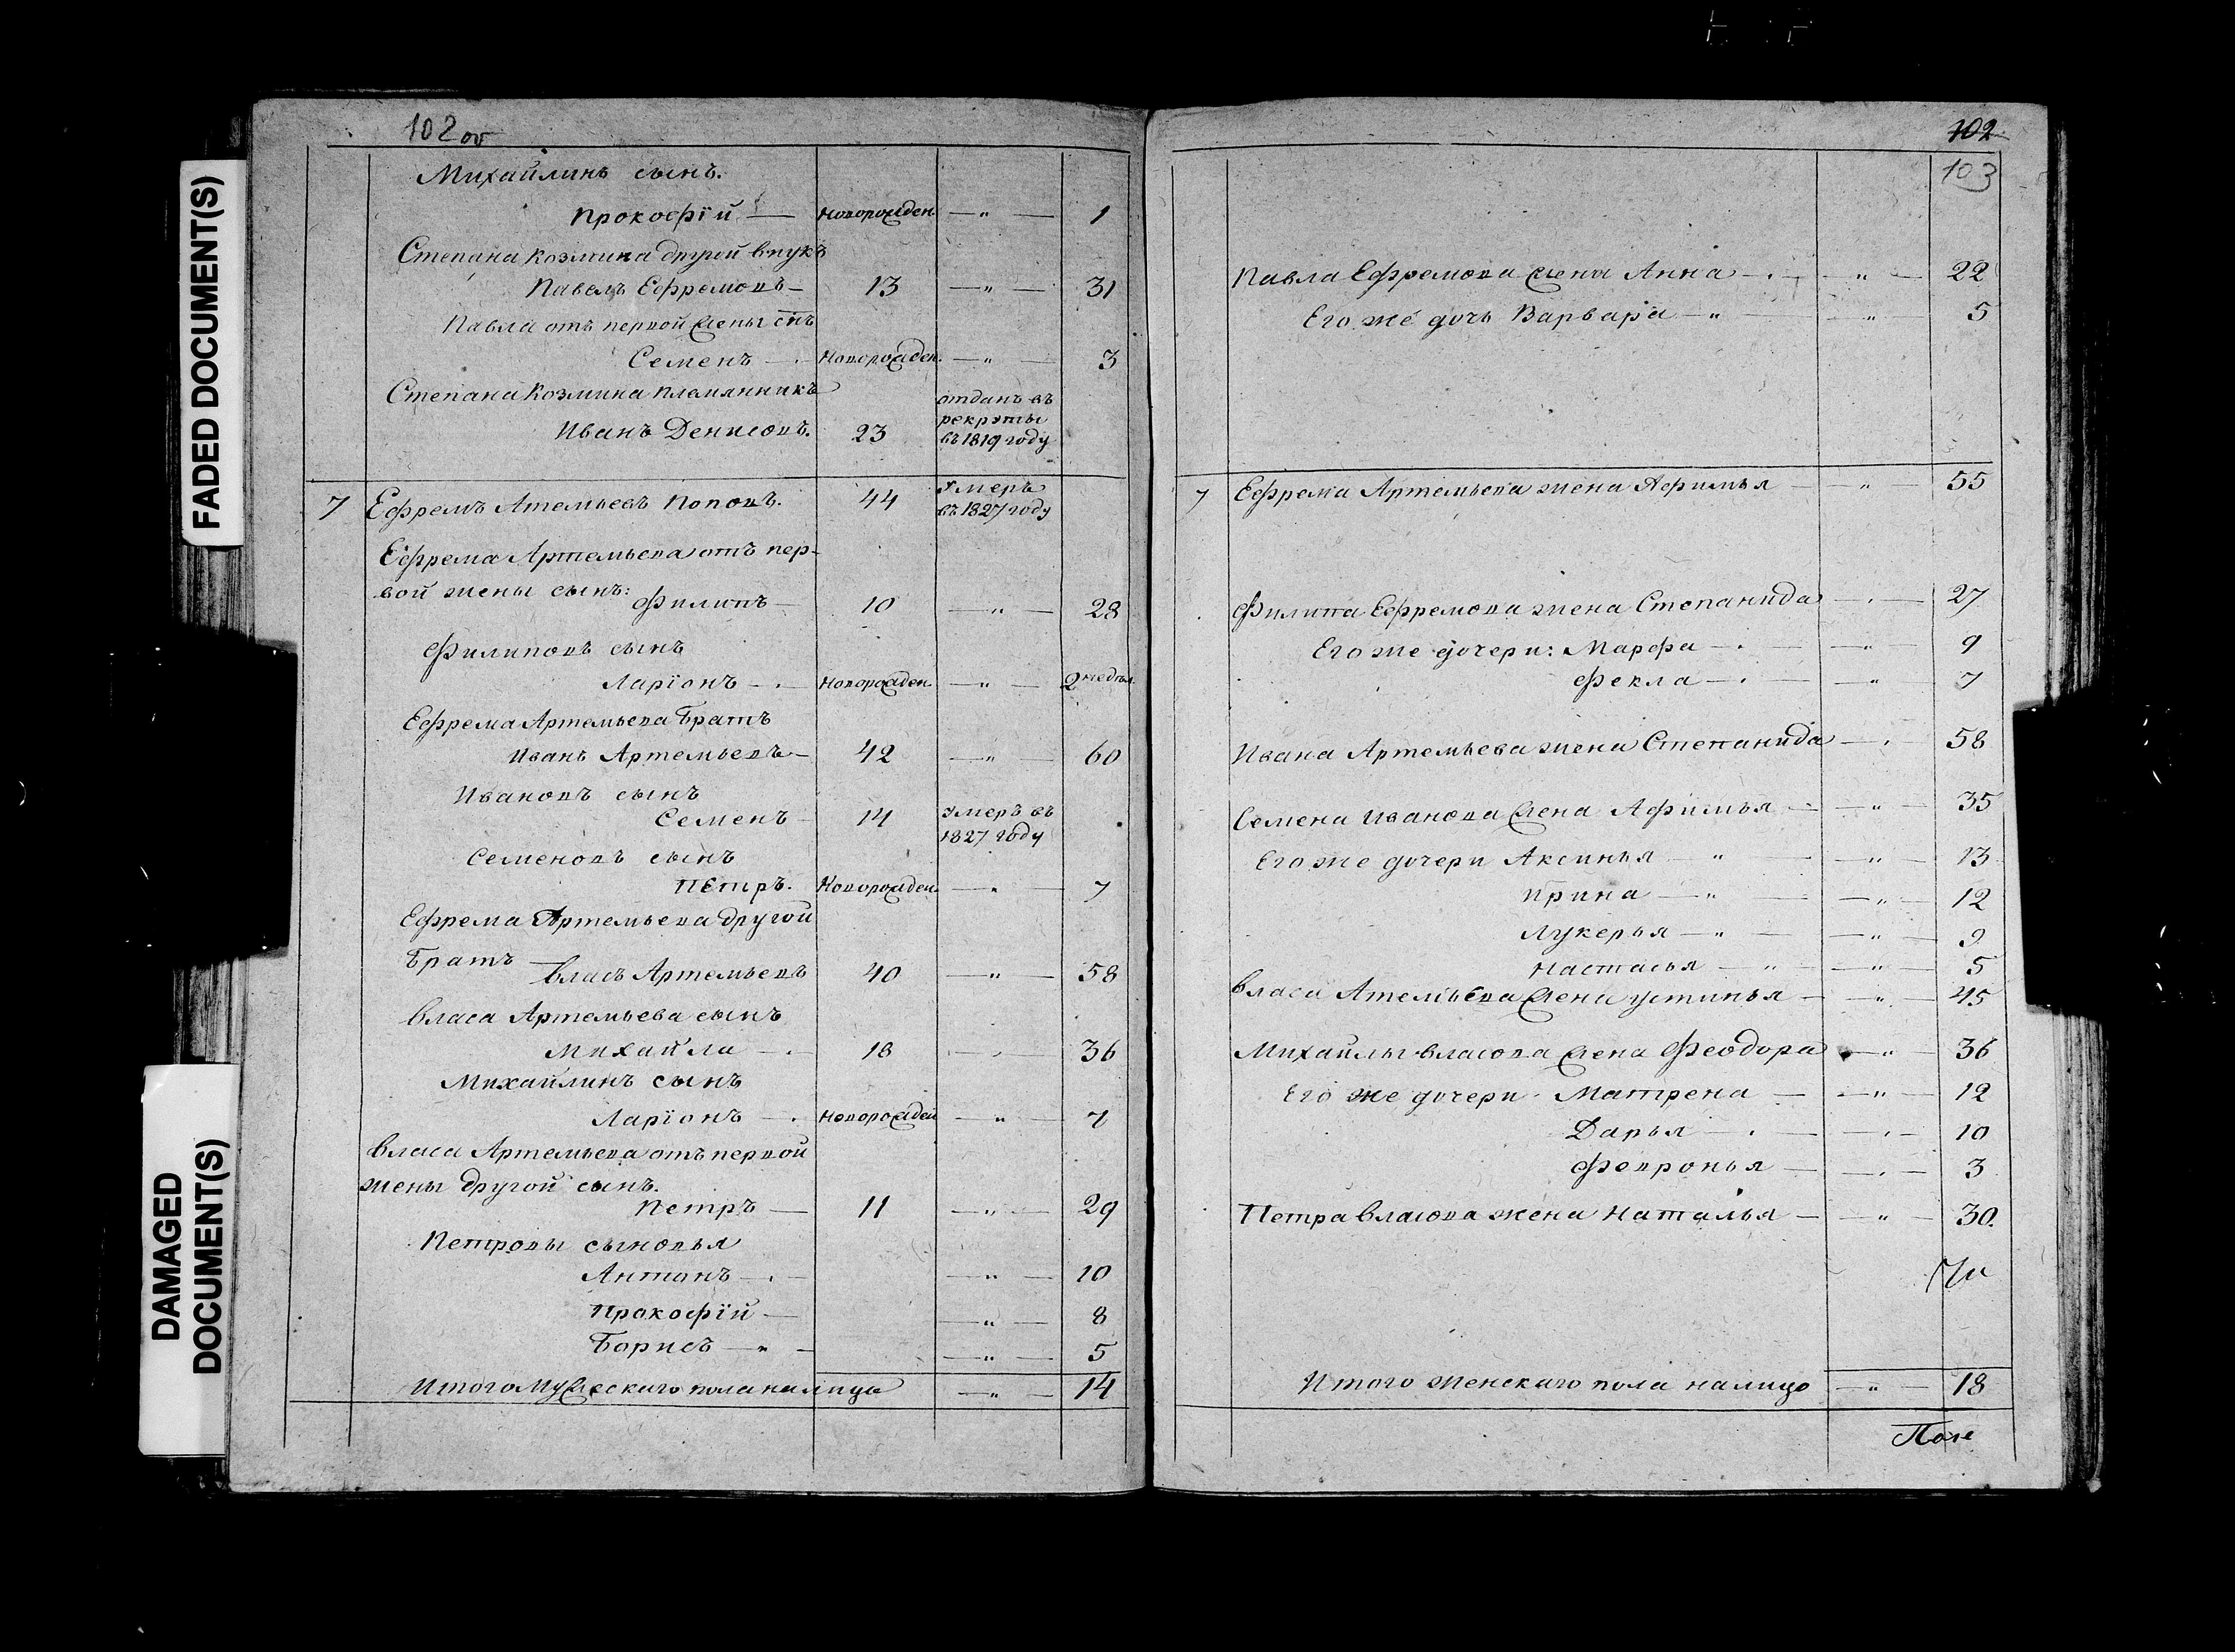 FADED DOCUMENT(S)
DAMAGED
DOCUMENT(S)
102 об
Михайлинъ сынъ.
Прокофій — новорожден — „ — 1
Степана Козмина другой внукъ
Павелъ Ефремовъ — 13 — „ — 31
Павла отъ первой жены снъ
Семенъ — новорожден. — „ — 3
Степана Козмина племянникъ
Иванъ Денисовъ. 23 отданъ въ
рекруты
въ 1819 году
7 Ефремъ Атемьевъ Поповъ. 44 умеръ
въ 1827 году
Ефрема Артемьева отъ пер-
вой жены сынъ:
Филипъ — 10 — „ — 28
Филиповъ сынъ
Ларіонъ — новорожден. — „ — 2 недѣл.
Ефрема Артемьева братъ
Иванъ Артемьевъ — 42 — „ — 60
Ивановъ сынъ
Семенъ — 14 умеръ въ
1827 году
Семеновъ сынъ
Петръ. Новорожден. — „ — 7
Ефрема Артемьева другой
братъ —
Власъ Артемьевъ 40 — „ — 58
Власа Артемьева сынъ
Михайла — 18 — „ 36
Михайлинъ сынъ
Ларіонъ — новорожден — „ — 7
Власа Артемьева отъ первой
жены другой сынъ.
Петръ — 11 — „ — 29
Петровы сыновья
Антонъ — — „ — 10
Прокофій — — „ — 8
Борисъ — „ — — „ — 5
Итого мужескаго пола налицо — „ — 14
102
103
Павла Ефремова жена Анна — „ — 22
Его же дочь Варвара — „ — „ — 5
7 Ефрема Артемьева жена Афимья — „ — 55
Филипа Ефремова жена Степанида — 27
Его же дочери: Марфа — „ — 9
Фекла — „ — 7
Ивана Артемьева жена Степанида — 58
Семена Иванова жена Афимья — „ — 35
Его же дочери Аксинья „ — „ — 13
Ирина — „ — „ — 12
Лукерья — „ — „ — 9
Настасья — „ — „ — 5
Власа Атемьева жена Устинья — „ — 45
Михайлы Власова жена Феодора — „ — 36
Его же дочери Матрена — „ — 12
Дарья — „ — 10
Февронья — „ — 3
Петра Власова жена Наталья — „ — 30.
Итого женскаго пола налицо — „ — 18